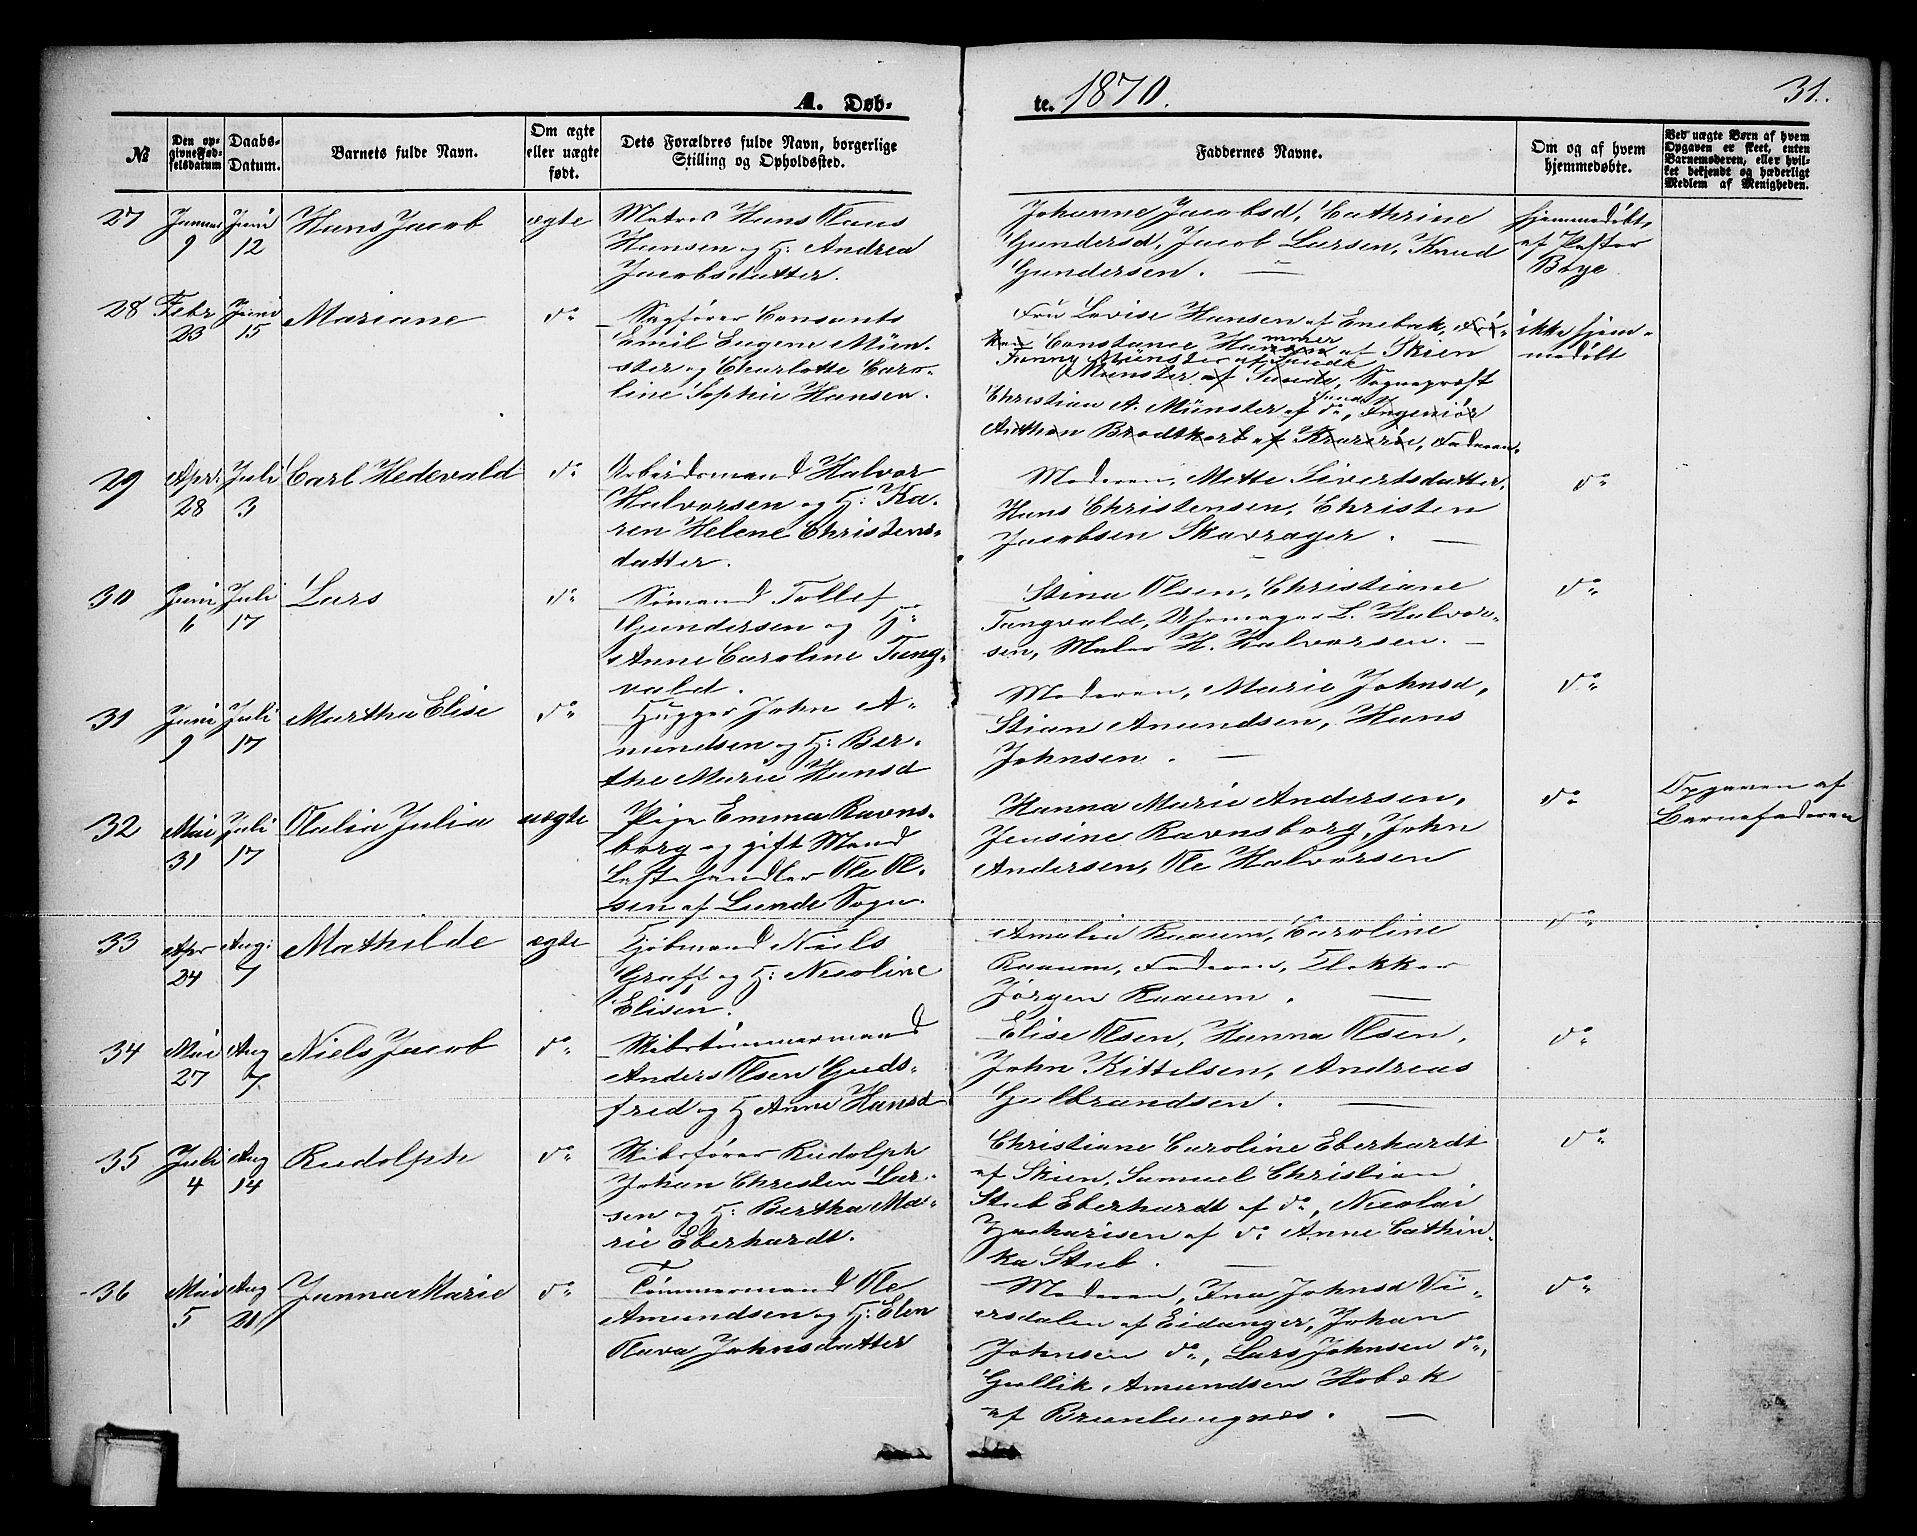 A. Døb-
te. 1870.
31.
№
Den op-
givne Fød-
selsdatum
Daabs-
Datum.
Barnets fulde Navn.
Om ægte
eller uægte
født.
Dets Forældres fulde Navn, borgerlige
Stilling og Opholdssted.
Faddernes Navne.
Om og af hvem
hjemmedøbte.
Ved uægte Børn af hvem
Opgaven er skeet, enten
Barnemoderen, eller hvil-
ket bekjendt og hæderligt
Medlem af Menigheden.
27
9
Juni
12
Hans Jacob
ægte
Matros Hans Olaus
Hansen og H: Andrea
Jacobsdatter.
Johanne Jacobsd, Cathrine
Gundersd, Jacob Larsen, Knud
Gundersen.
hjemmedøbt,
af Pastor
Boye
28
Febr
23
Juni
15
Mariane
do
Sagfører Consents
Emil Eugene Mün-
ster og Charlotte Caro-
line Sophie Hansen.
Fru Lovise Hansen af Enebak,
Constance af Skien
Fanny Münster af
Münster af Sougneprest
Christian A. Münster af do, Ingeniør
Anthon Brodtkorb af Kragerøe, Faderen.
ikke hjem-
medøbt
29
Apr.
28
Juli
3
Carl Hedevald
do
Arbeidsmand Halvor
Halvorsen og H: Ka-
ren Helene Christens-
datter.
Moderen, Mette Sivertsdatter,
Hans Christensen, Christen
Jacobsen Skavrager.
do
30
Juni
6
Juli
17
Lars
do
Sømand Tollef
Gundersen og H:
Anne Caroline Tang-
vald.
Stina Olsen, Christiane
Tangvald, Uhrmager L. Halvor-
sen, Maler H. Halvorsen.
do
31
Juni
9
Juli
17
Martha Elise
do
Hugger John A-
mundsen og H: Ber-
the Marie Hansd
Moderen, Marie Johnsd,
Stian Amundsen, Hans
Johnsen.
do
32
Mai
31
Juli
17
Olalia Julia
uægte
Pige Emma Ravns-
borg og gift Mand
Ole Ol-
sen af Lunde Sogn.
Hanna Marie Andersen,
Jensine Ravnsborg, John
Andersen, Ole Halvorsen
do
Opgaven af
Barnefaderen
33
Apr
24
Aug:
7
Mathilde
ægte
Kjøbmand Niels
Graff og H: Nicoline
Elisen.
Amalia Raaum, Caroline
Raaum, Faderen, Klokker
Jørgen Raaum.
do
34
Mai
27
Aug
7
Niels Jacob
do
Skibstømmermand
Anders Olsen Guds-
fred og H Anne Hansd
Elise Olsen, Hanna Olsen,
John Kittelsen, Andreas
Gulbrandsen.
do
35
Juli
4
Aug
14
Rudolph
do
Skibsfører Rudolph
Johan Christen Lar-
sen og H: Bertha Ma-
rie Eberhardt.
Christiane Caroline Eberhardt
af Skien, Samuel Christian
Stub Eberhardt af do, Nicolai
Zachariasen af do Anne Cathin-
ka Stub.
do
36
Mai
5
Aug
21
Janna Marie
do
Tømmermand Ole
Amundsen og H: Elen
Olava Johnsdatter
Moderen, Ina Johnsd Vi-
ersdalen af Eidanger, Johan
Johnsen do, Lars Johnsen do,
Gullik Amundsen Hobæk
af Brunlangnæs.
do